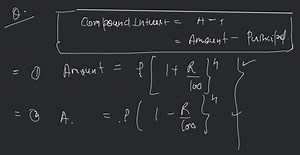 Q.
Compound Interest = A - P
= Amount - Principal
= ① Amount = P [ 1 + R/100 ]^n
= ② A. = P ( 1 - R/100 )^n